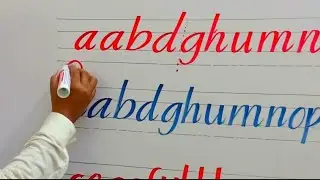 aabdghumn
abdghumnop